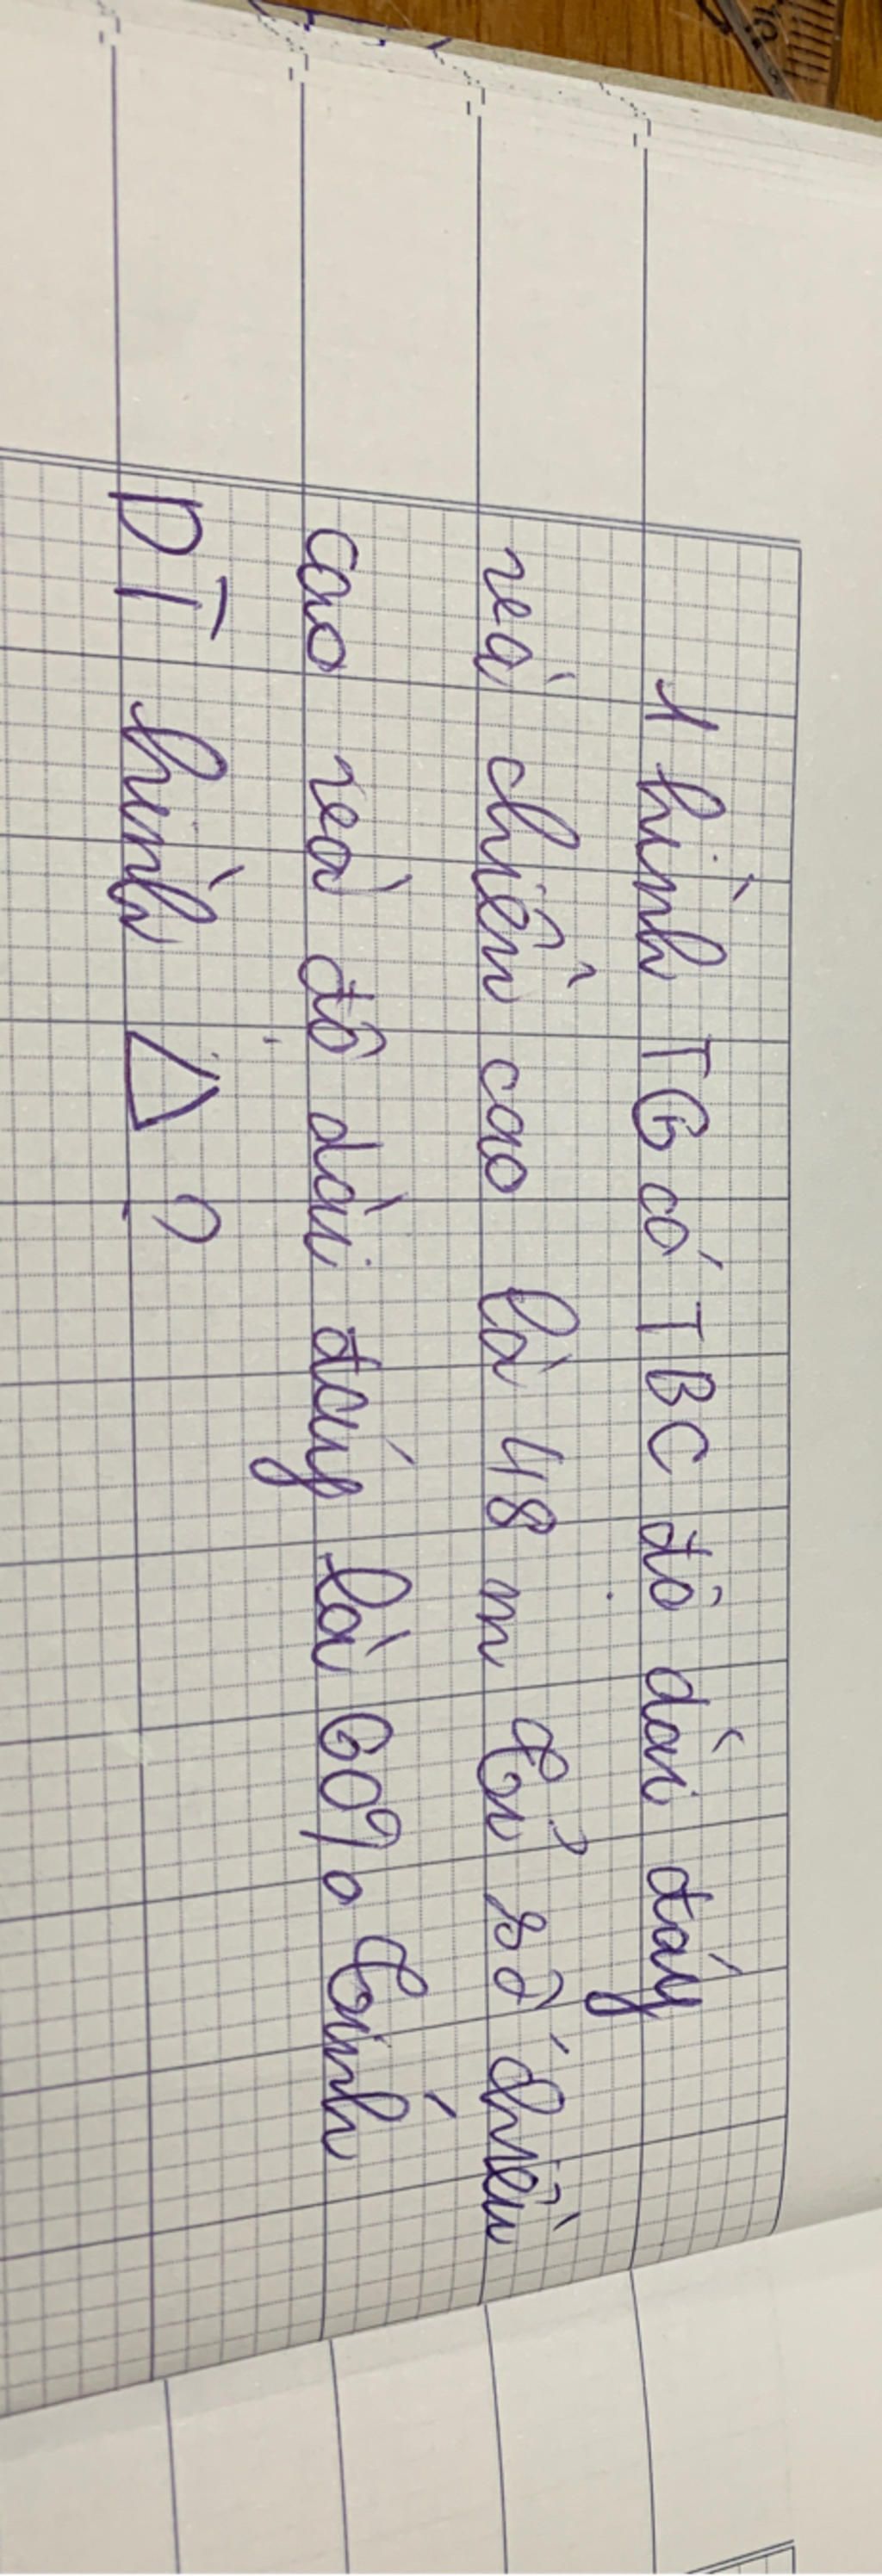 1 hình TG có TBC độ dài đáy
và chiều cao là 48 m Tỉ số chiều
cao và độ dài đáy là 60% Tính
DT hình Δ ?